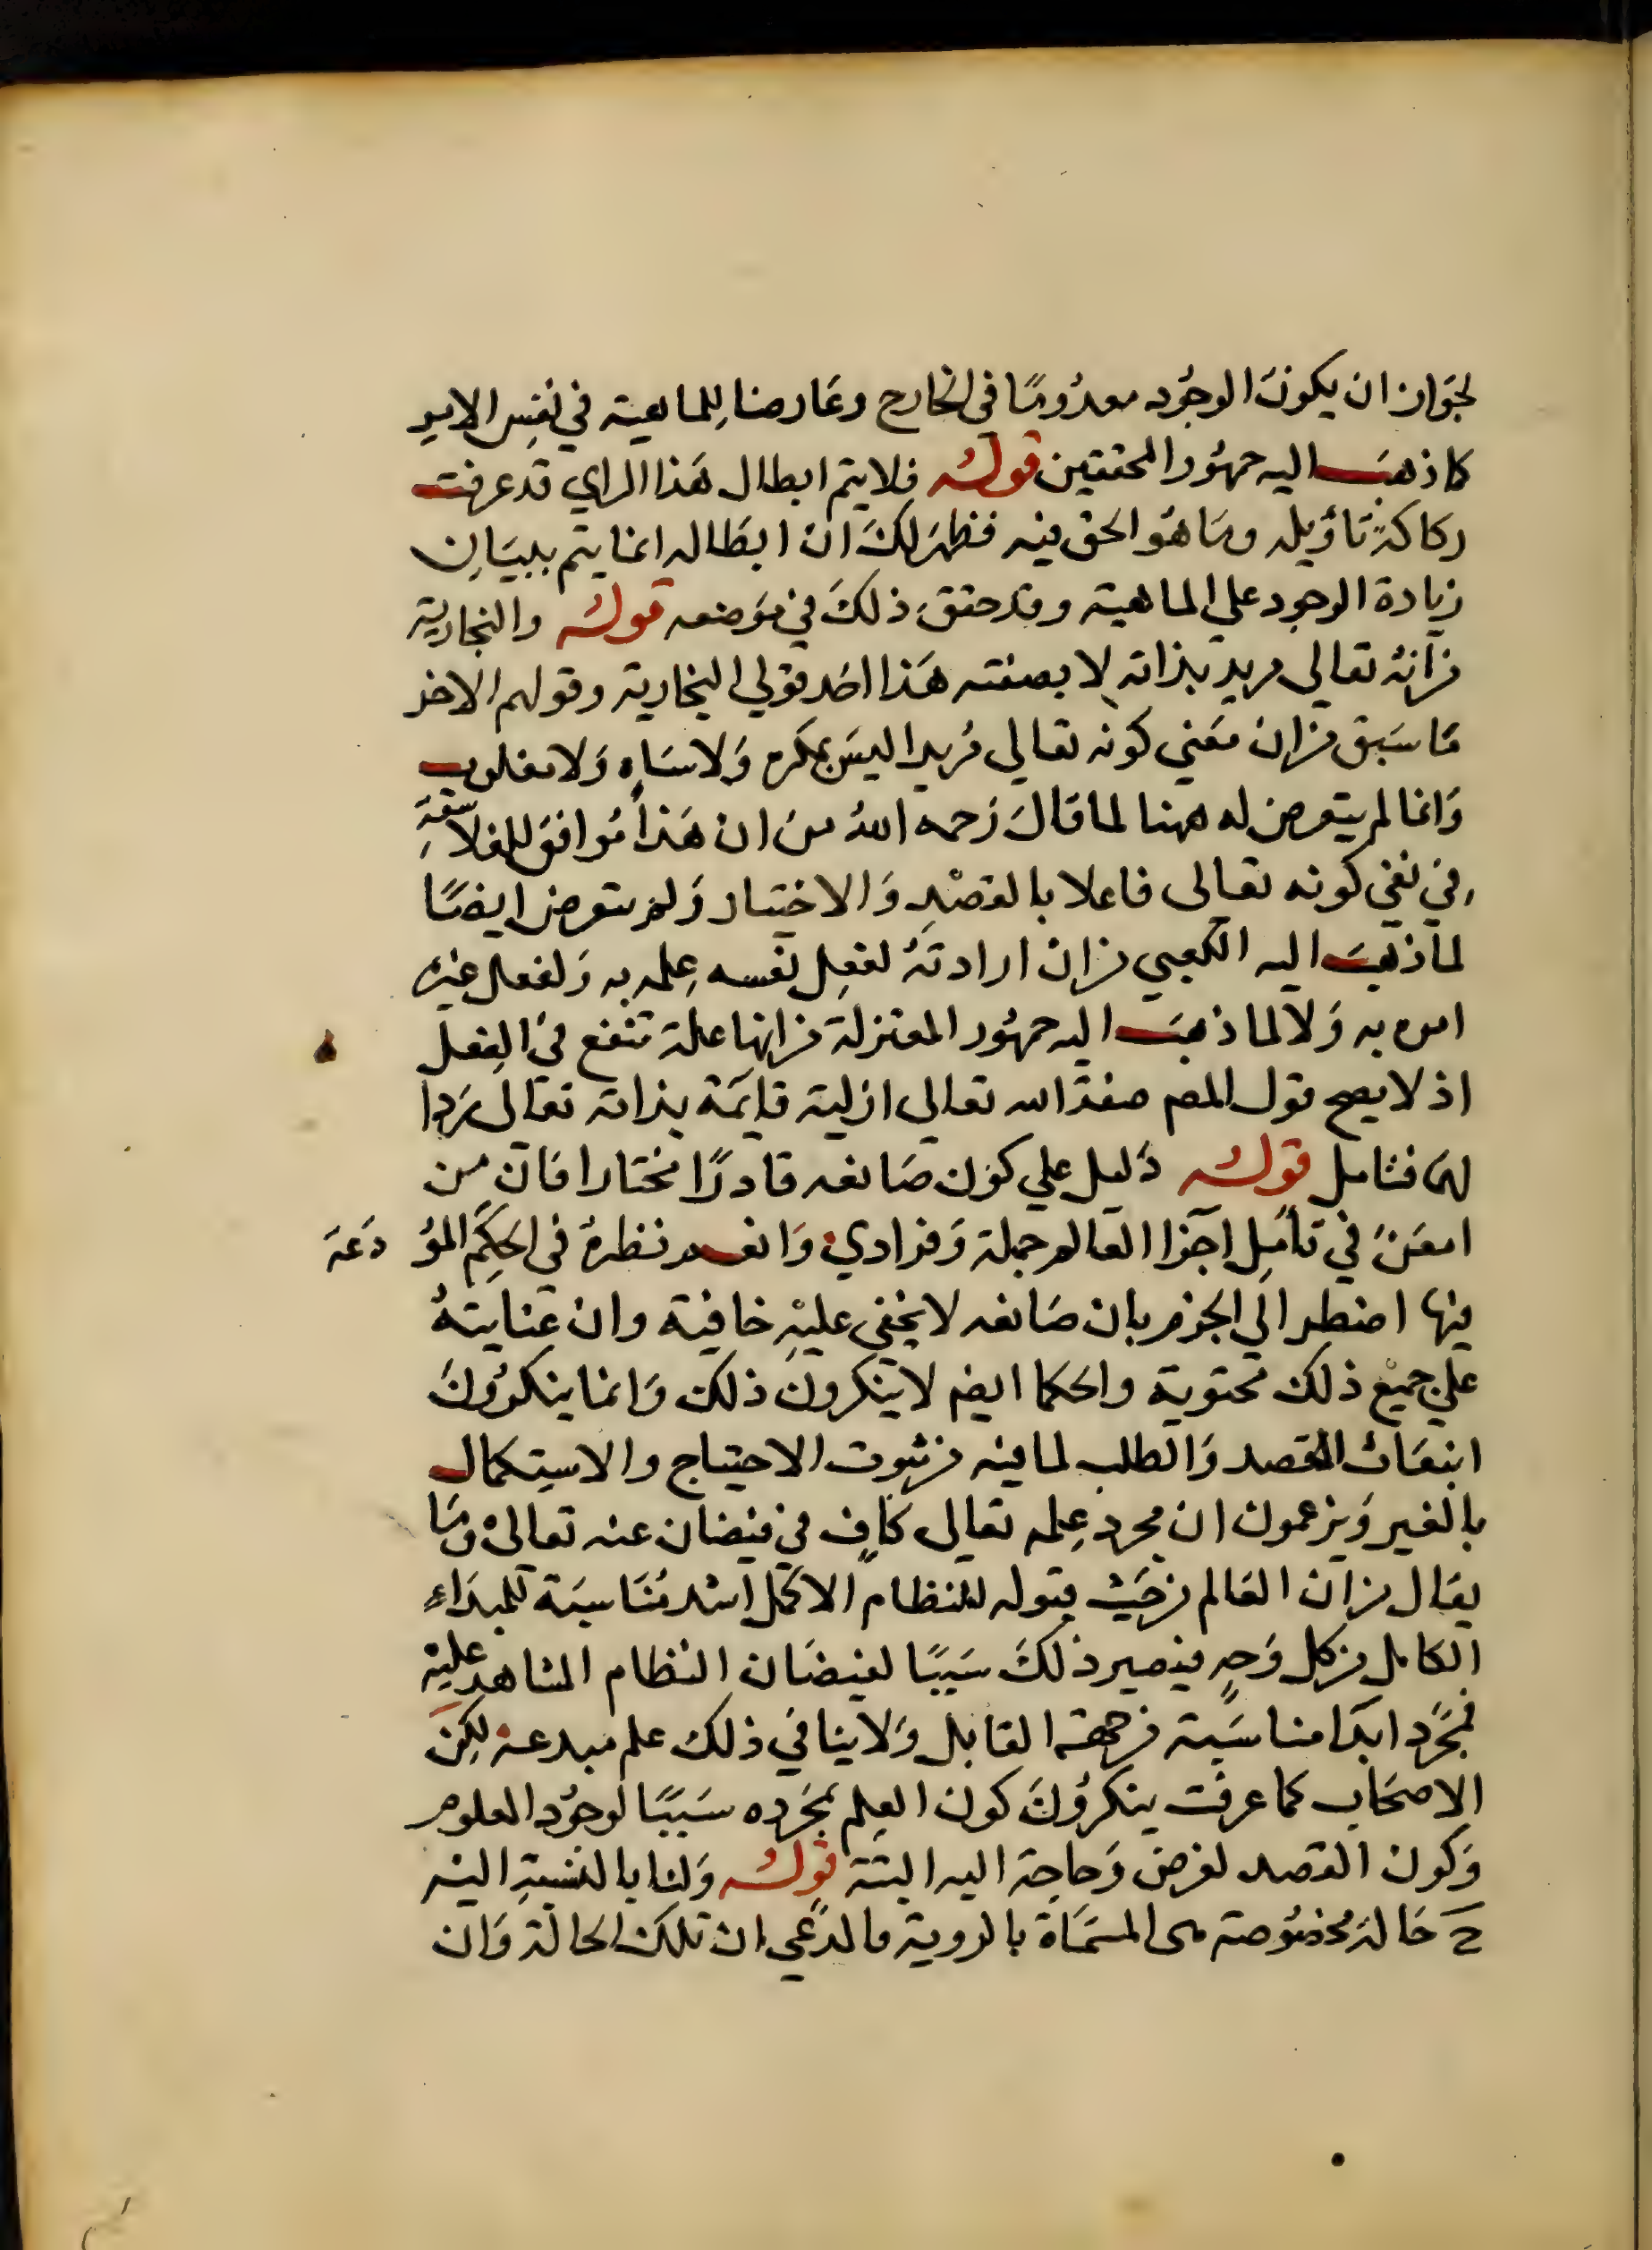 لجَوَاز ان يكونَ الوجُود معدُومًا في الخارج وعَارضا لِلماهية في نفسِ الامر
كما ذهبَ اليه جمهُور المحققين قولهُ فلايتم ابطال هَذا الراي قد عرفت
ركاكة تاوَيله ومَا هُو الحق فيه فظهرَ لكَ ان ابطَاله انما يتم ببيَانِ
زيادة الوجود علي الماهية وقد حقق ذلكَ في مَوضعه قولهُ والنجارية
من انهُ تعالي مريد بذاته لا بصفته هَذا احَد قولي النجارية وقولهم الاخر
مَا سَبق من ان مَعني كونه تعالي مُريدا ليسَ بمكره وَلا سَاهٍ وَلا مغلوب
وَانما لم يتعرض له ههنا لما قالَ رَحمه اللهُ من ان هَذا مُوافق للفلاسفةِ
في نفي كونه تعالى فاعلا بالقصْدِ وَالاختيار وَلم يتعرض ايضًا
لما ذهبَ اليه الكعبي من ان ارادتهُ لفعِل نفسه عِلمه به وَلفعل غيره
امره به وَلا لما ذهبَ اليه جمهُور المعتزلة من انها علمه بنفع في الفعل
اذ لا يصح قول المصم صفة الله تعالي ازلية قايمَة بذاته تعالي رَدا
لهَا فتامل قولهُ دَليل علي كوَن صَانعه قادرًا مختارا فان من
امعَنَ في تأمِل اجَزا العَالم جملة وَفرادي وَانعم نظرهُ في الحِكَم المُوْ دَعَة
فيها اضطر الي الجزم بان صَانعه لا يخفي عليْهِ خافية وان عِنايتهُ
علي جميْع ذلك محتوية والحكما ايضم لا ينكرونَ ذلك وَانما ينكرُونَ
انبعَاث القصد وَالطلب لما فيه من ثبوت الاحتياج والاستِكمال
بالغير وَيزعمون ان مجرد عِلمه تعالي كافٍ في فيضان عنه تعاليْ ومَا
يقال من ان العَالم من حَيث قبوله للنظام الاكمل اشد مُنَاسبَة للمبدَاء
الكامل من كل وَجهٍ فيصير ذلكَ سَببًا لفيضَان النظام المشاهد عليْه
فمجَرَّد ابدَا مناسَبة من جهة القابل وَلا ينافي ذلك علم مبدعه لكِنَ
الاصحَاب كما عرفت ينكرُونَ كون العِلم بمجَرده سَببًا لوجُود المعلوم
وَكون القصد لغرض وَحاجة اليه البتة قولهُ وَلنا بالنسبةِ اليه
ح حَالة مخصُوصة هي المسمَاة بالروية فالمدَّعي ان تلك الحالة وَان